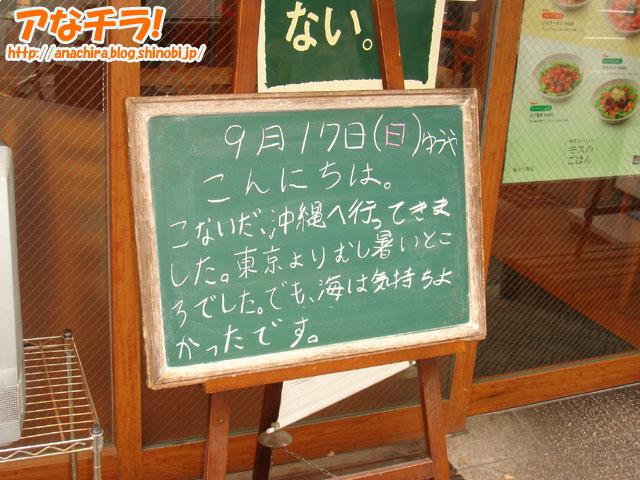 アなチラ!
http://anachira.blog.shinobi.jp/
ない。
9月17日(日)ゆうや
こんにちは。
こないだ、沖縄へ行ってきま
した。東京よりむし暑いとこ
ろでした。でも、海は気持ちよ
かったです。
モスの
ごはん